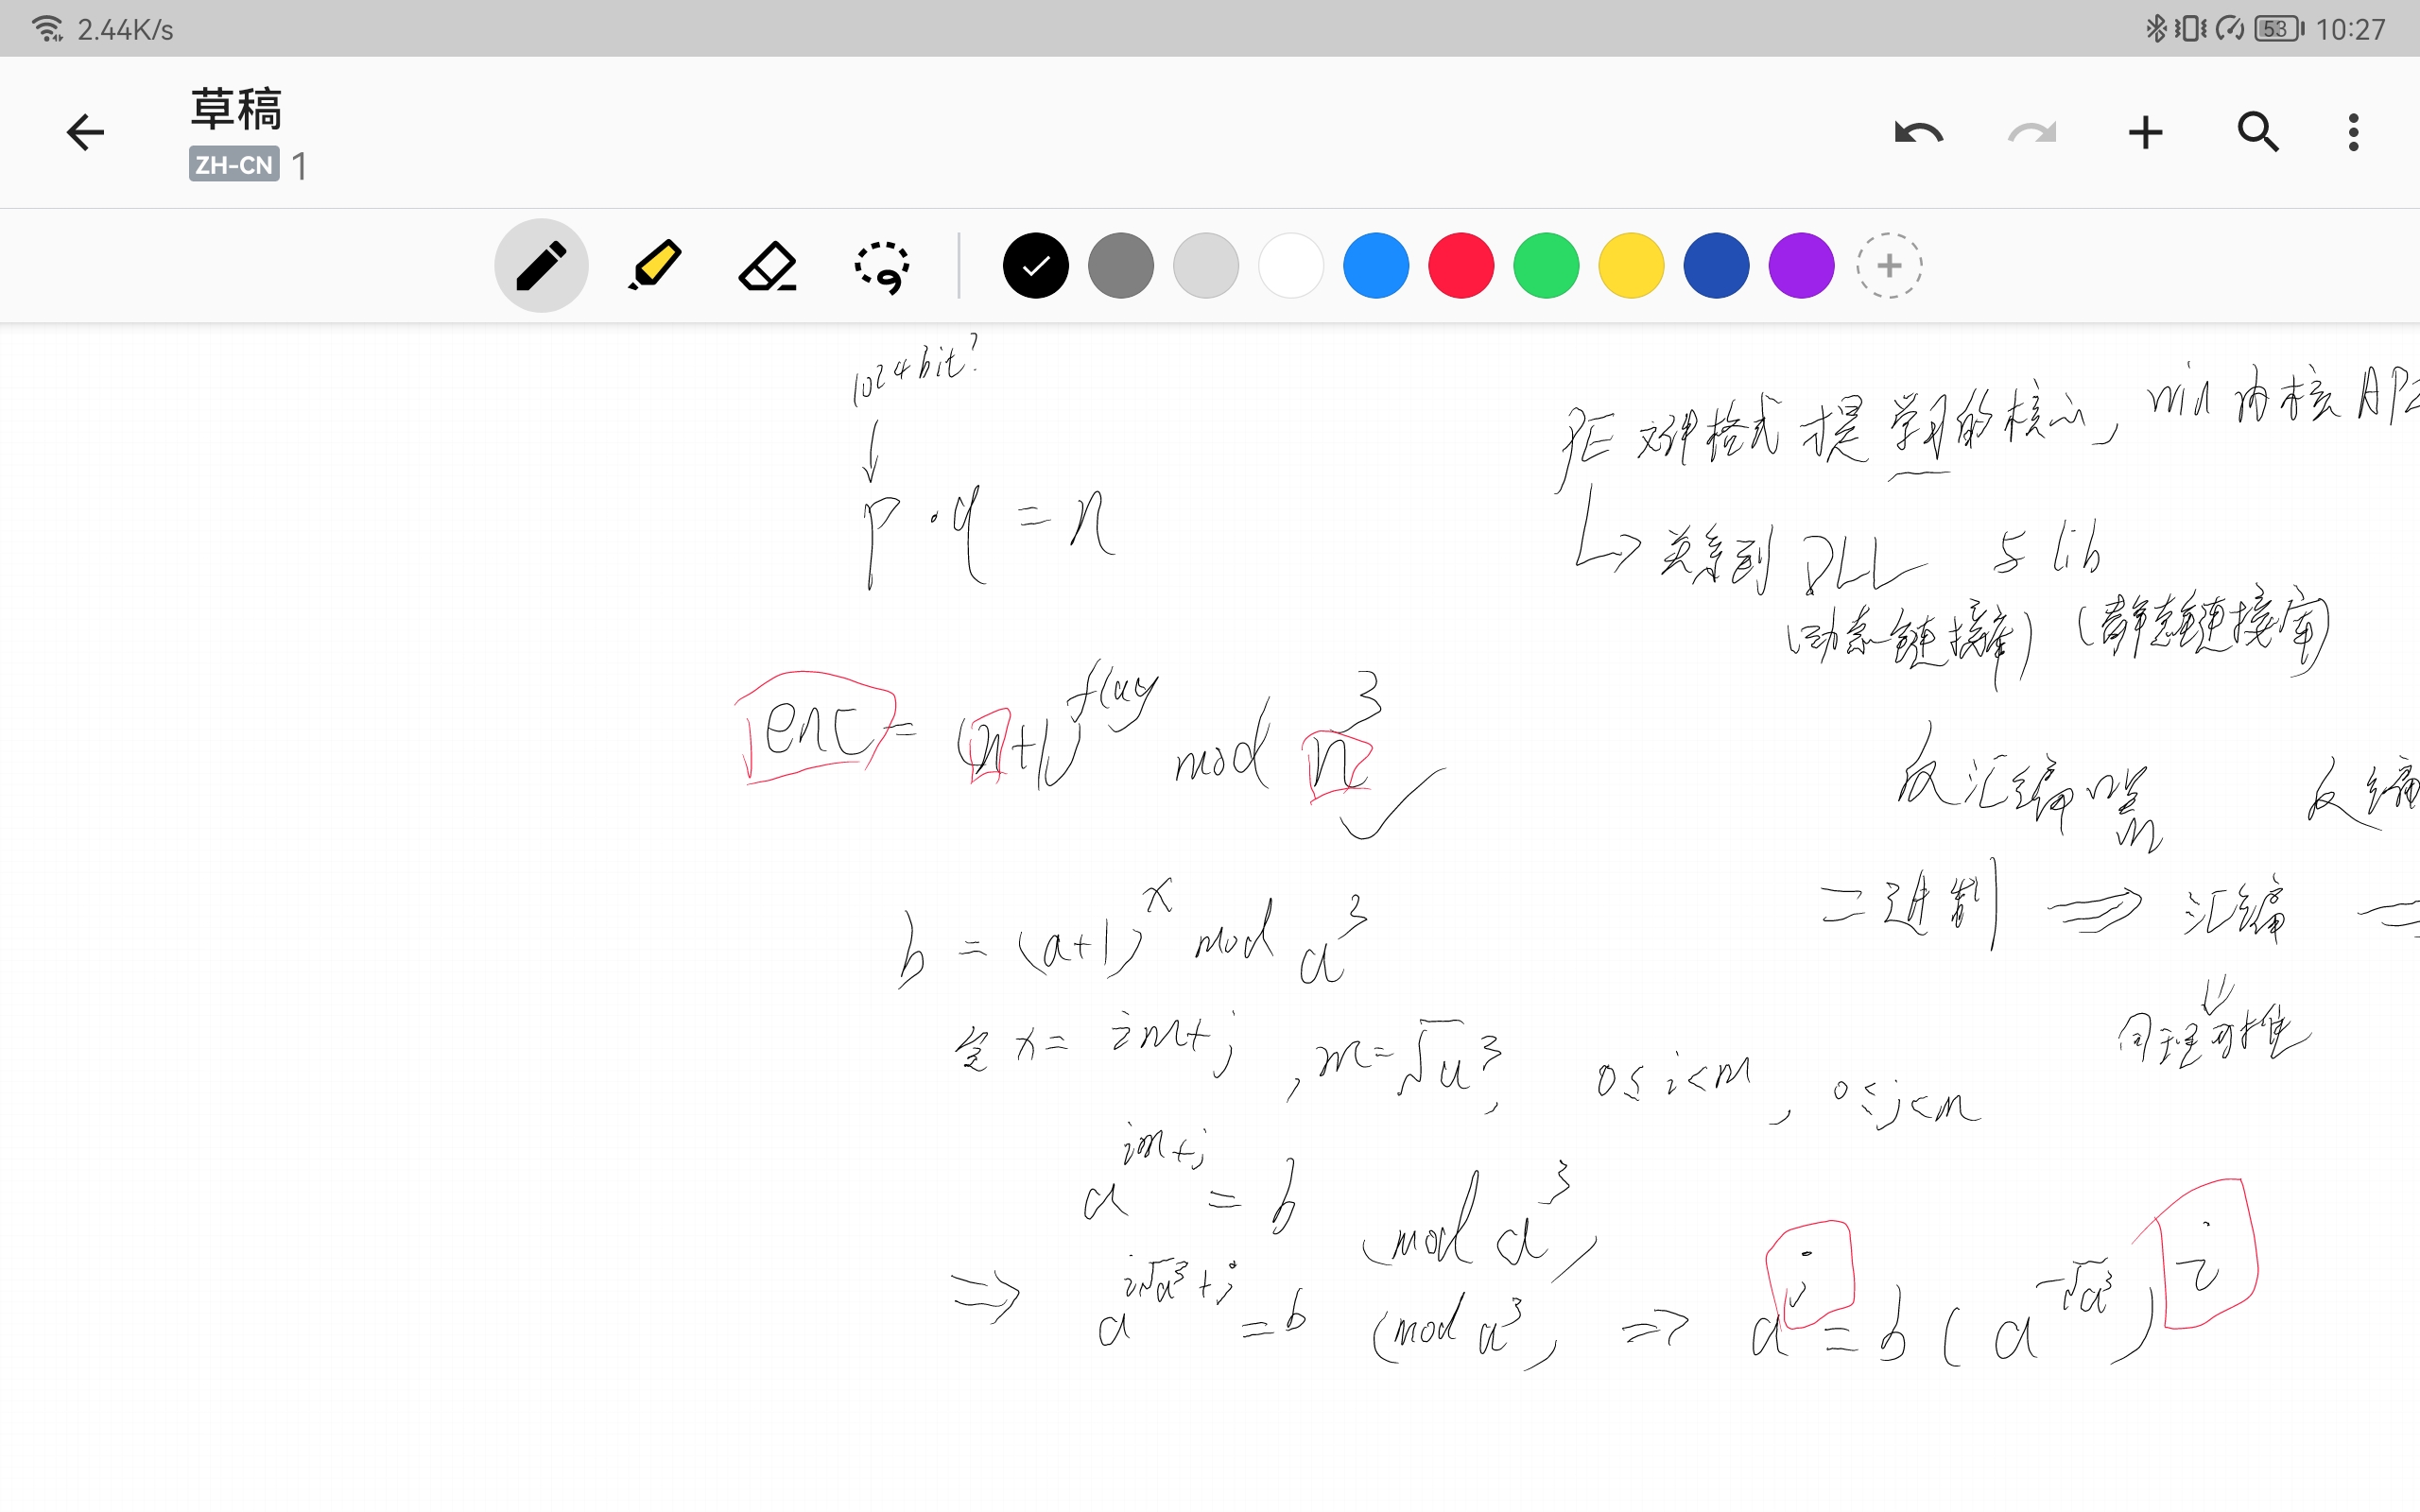 2.44K/s
53 10:27
草稿
ZH-CN 1
1024bit?
p·q=n
enc=(n+1)^flag mod n^3
b=(a+1)^x mod a^3
令x=im+j,m=√a^3, 0≤i<m, 0≤j<m
a^(im+j)=b (mod a^3)
⇒ a^(i√a^3+j)=b (mod a^3) ⇒ a^j=b(a^(-√a^3))^i
PE文件格式提学习的核心, win内核AP
↳关系到DLL 与lib
(动态链接库) (静态链接库)
反汇编 反编
二进制⇒汇编
⇓
同理可推